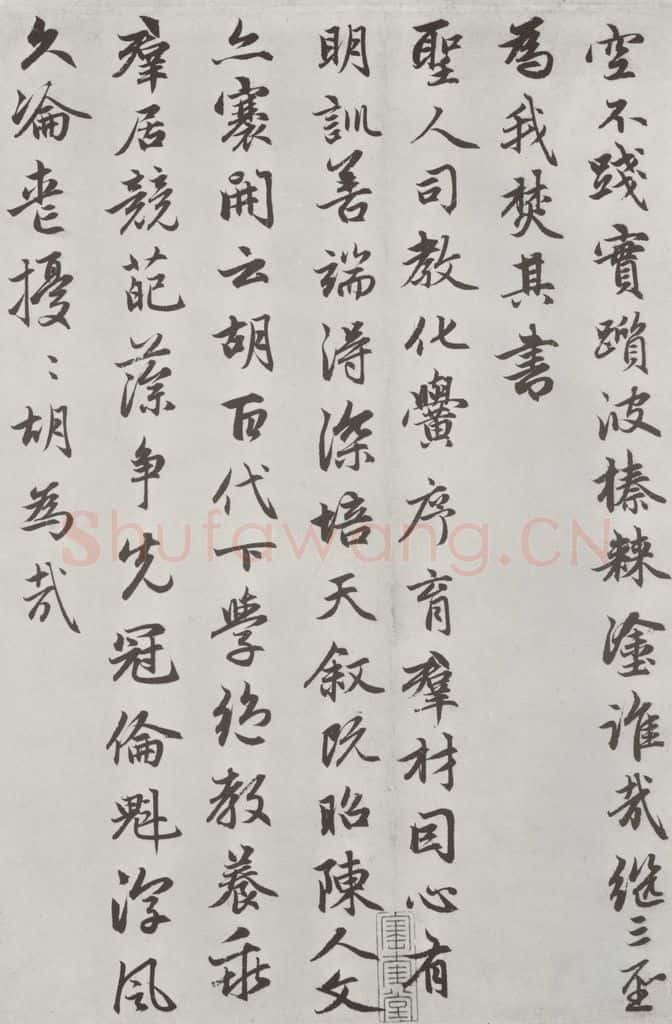 空不踐實躓彼榛棘塗誰哉継三聖
為我焚其書
聖人司教化黌序育羣材因心有
明訓善端得深培天叙既昭陳人文
亦褰開云胡百代下學絕教養乖
羣居競葩藻爭先冠倫魁淳風
久淪喪擾〻胡為哉
Shufawang.CN